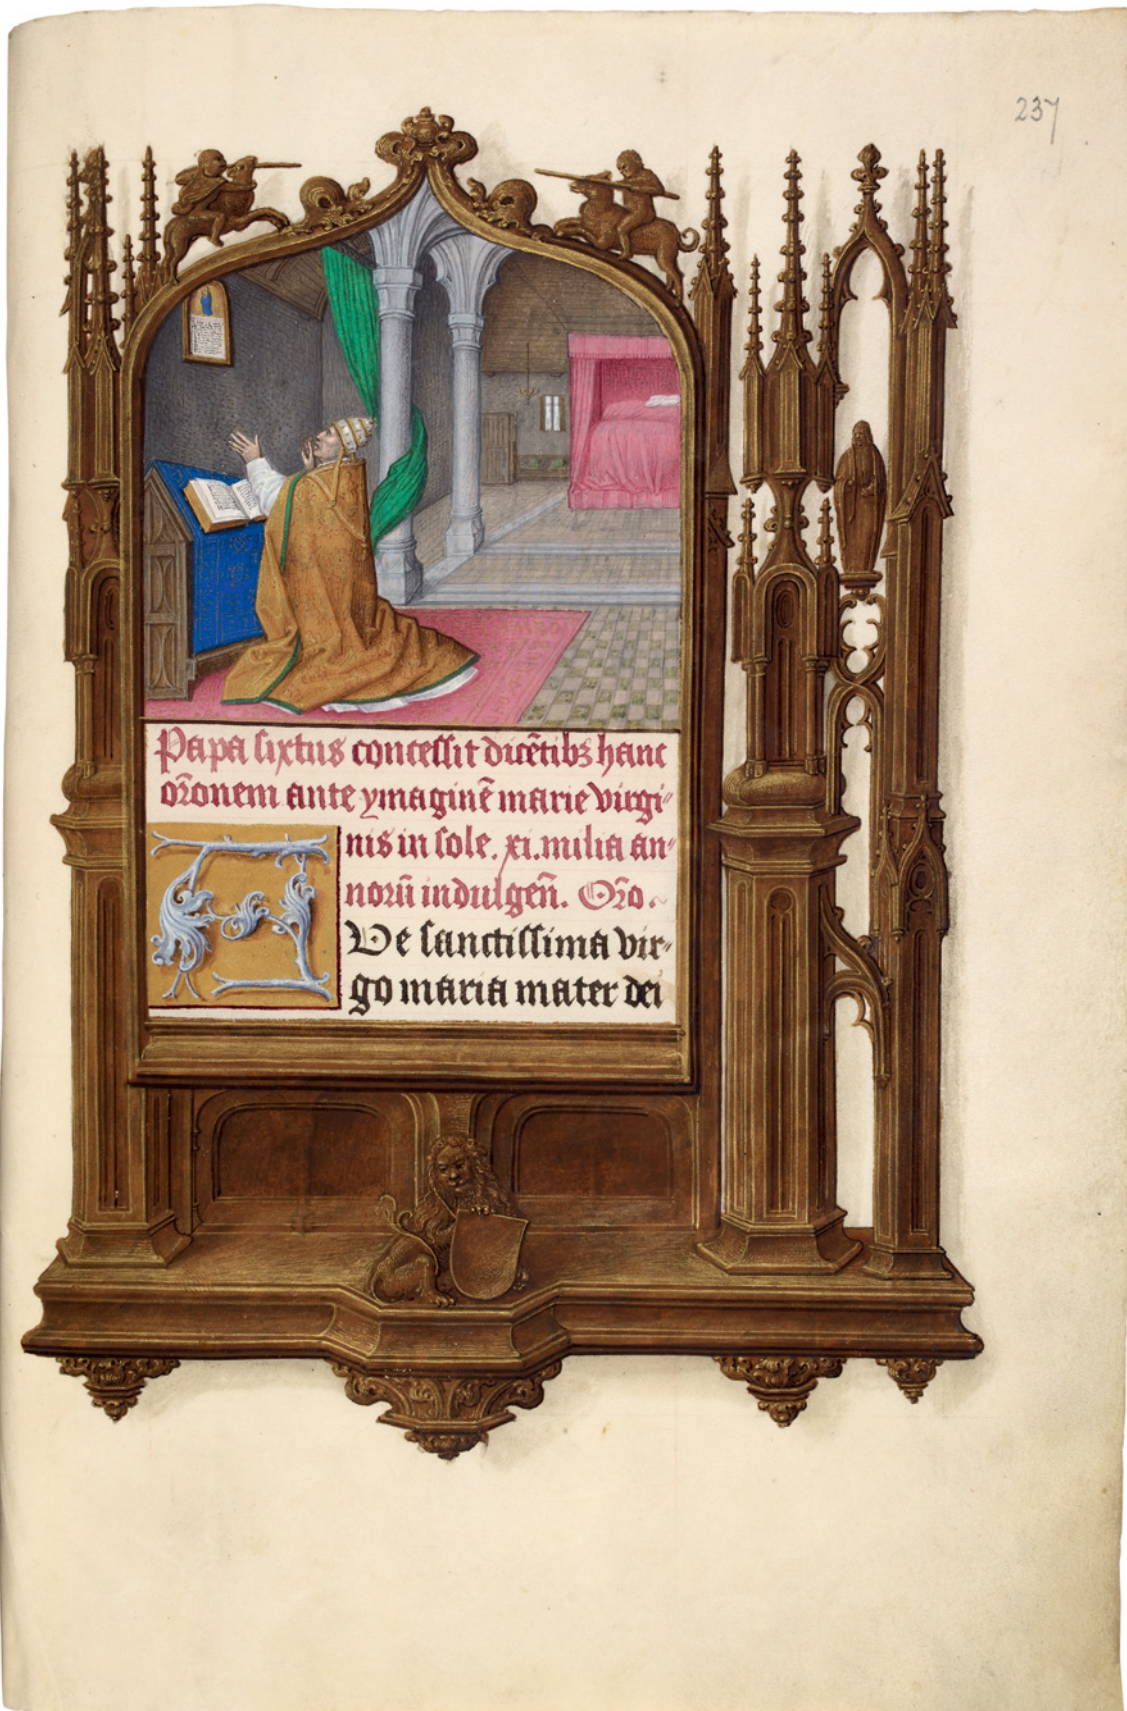 237
Papa sixtus concessit dicētibꝫ hanc
or̄onem ante ymaginē marie virgi⸗
nis in sole. xi. milia an⸗
norū indulgen̄. Or̄o.
AVe sanctissima vir⸗
go maria mater dei